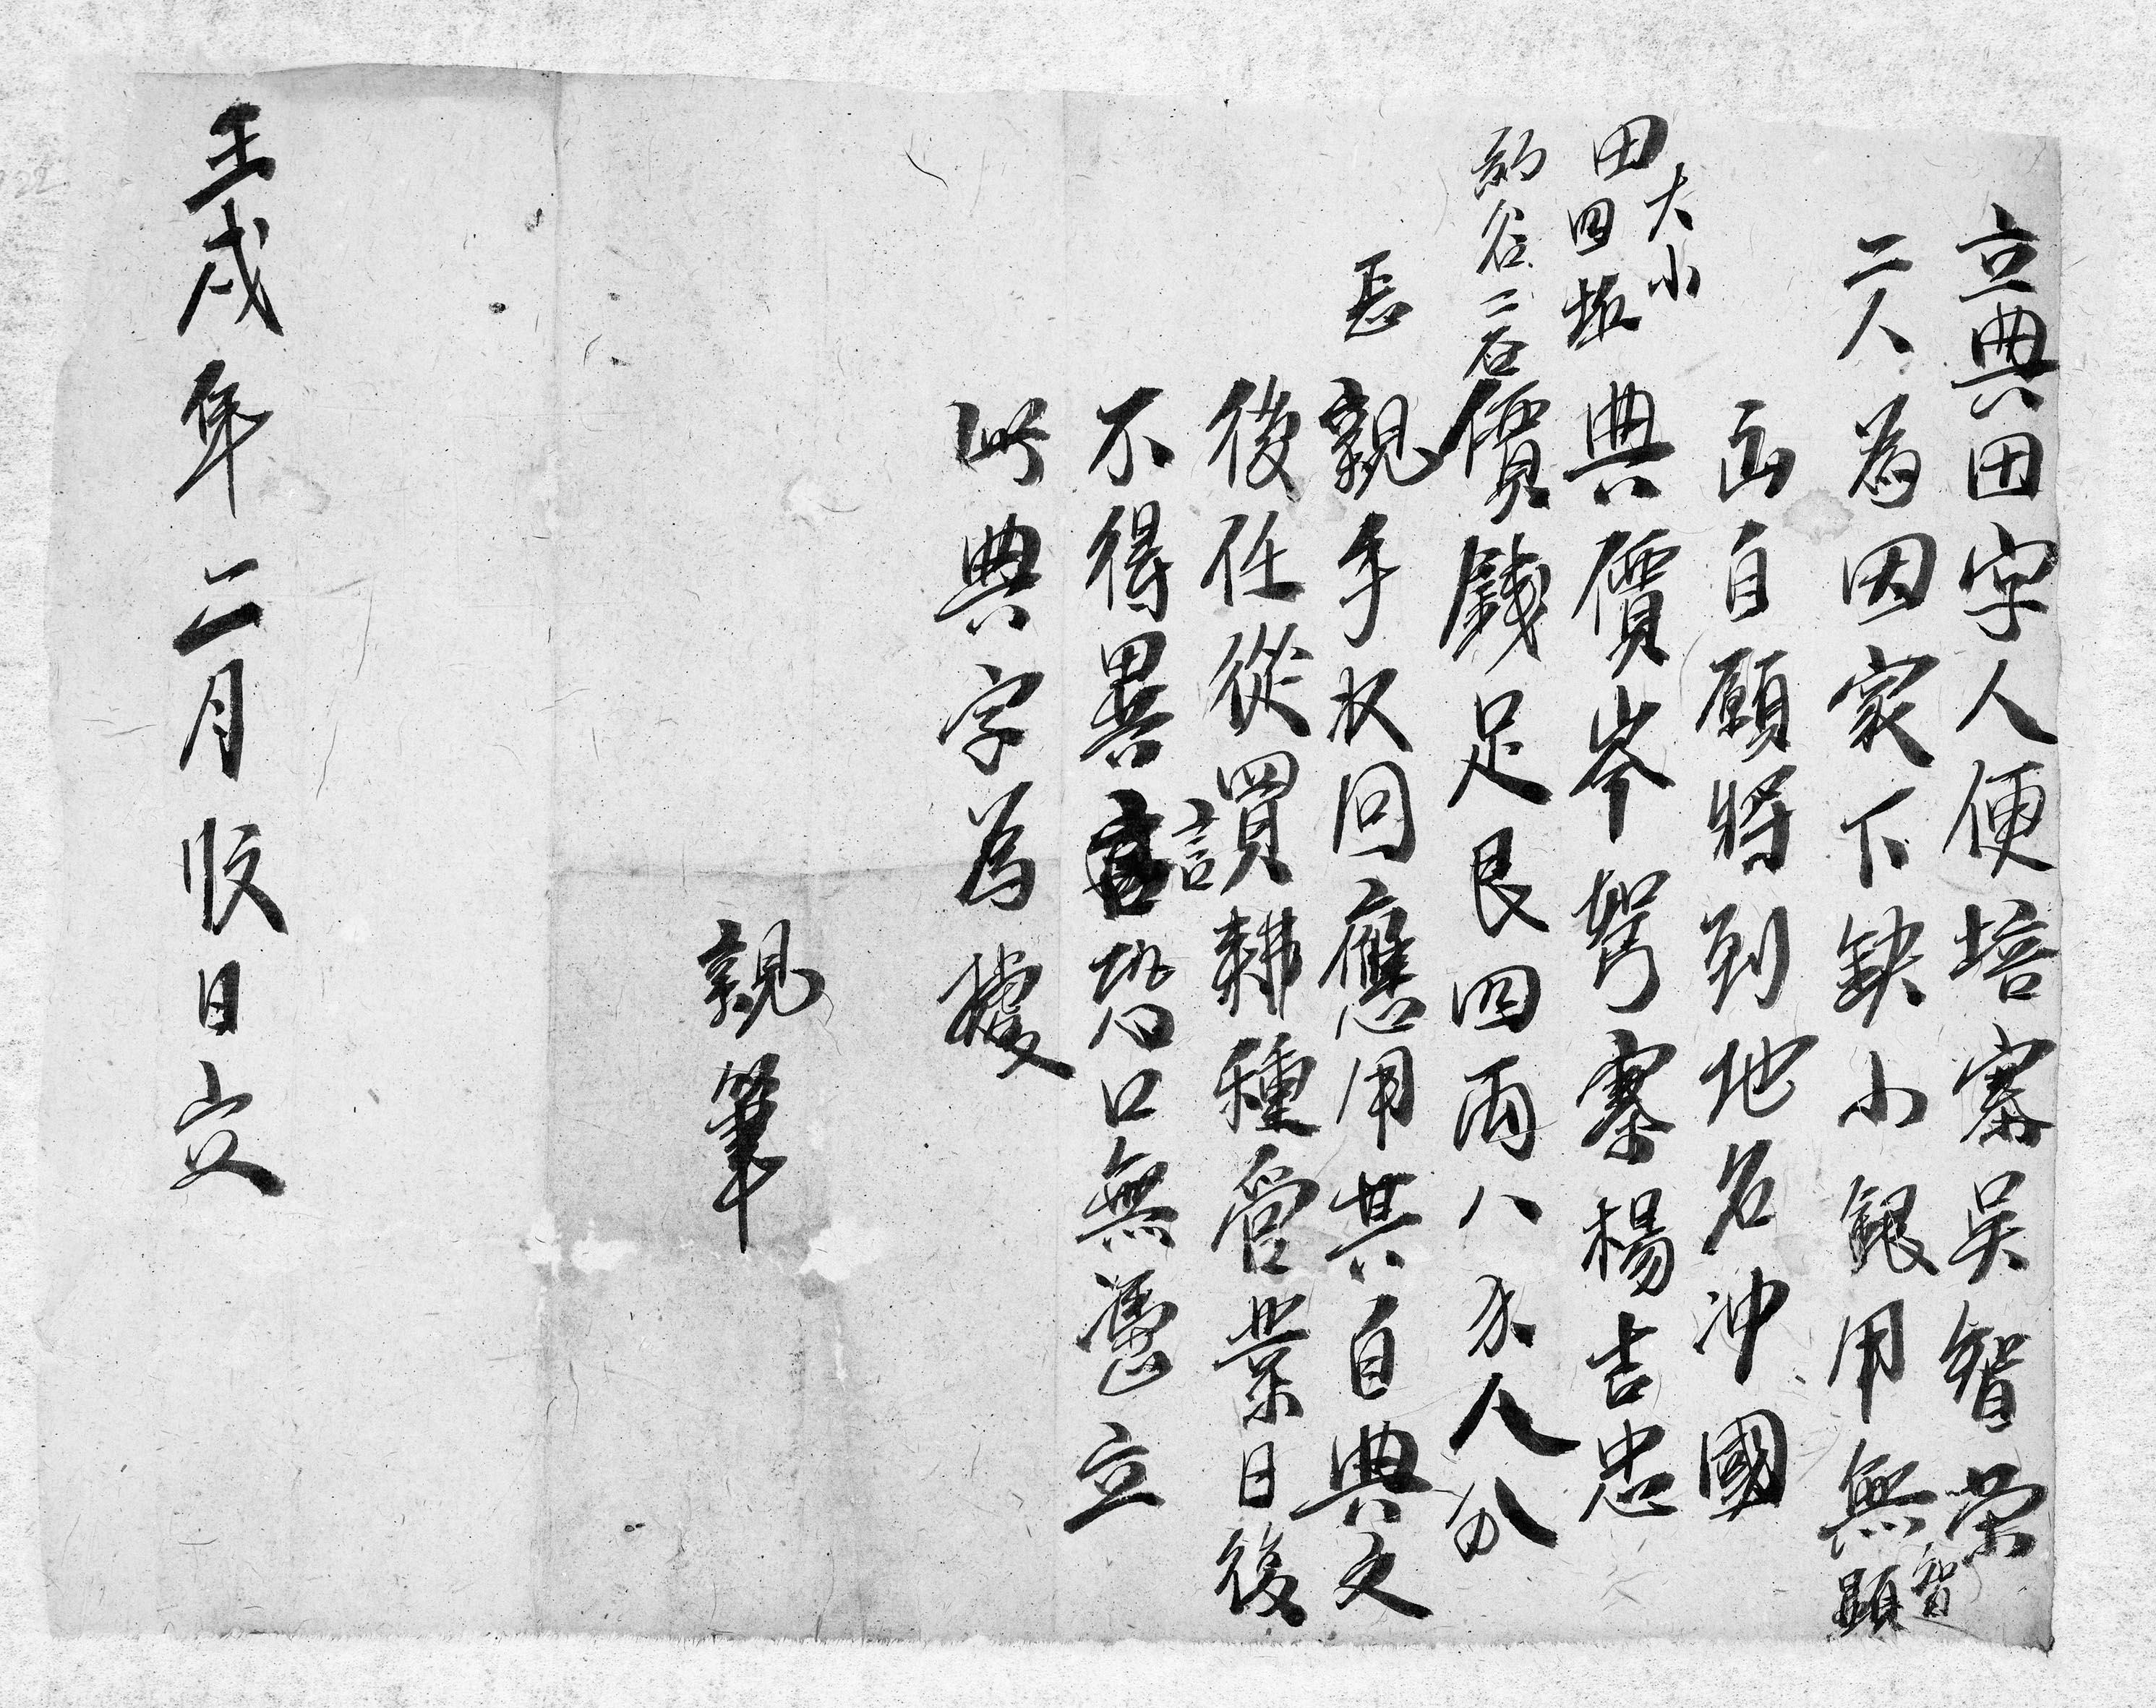 立典田字人便培寨吴智荣
智顕
二人為因家下缺少銀用無
出自願將到地名冲國
田大小四坵
典價岑努寨楊吉忠
約谷二石
價錢足艮四両八水八分
長
親手収回應用其自典之
後任從買耕種管業日後
不得異言恐口無憑立
言
此典字為據
親筆
壬戌年二月収日立